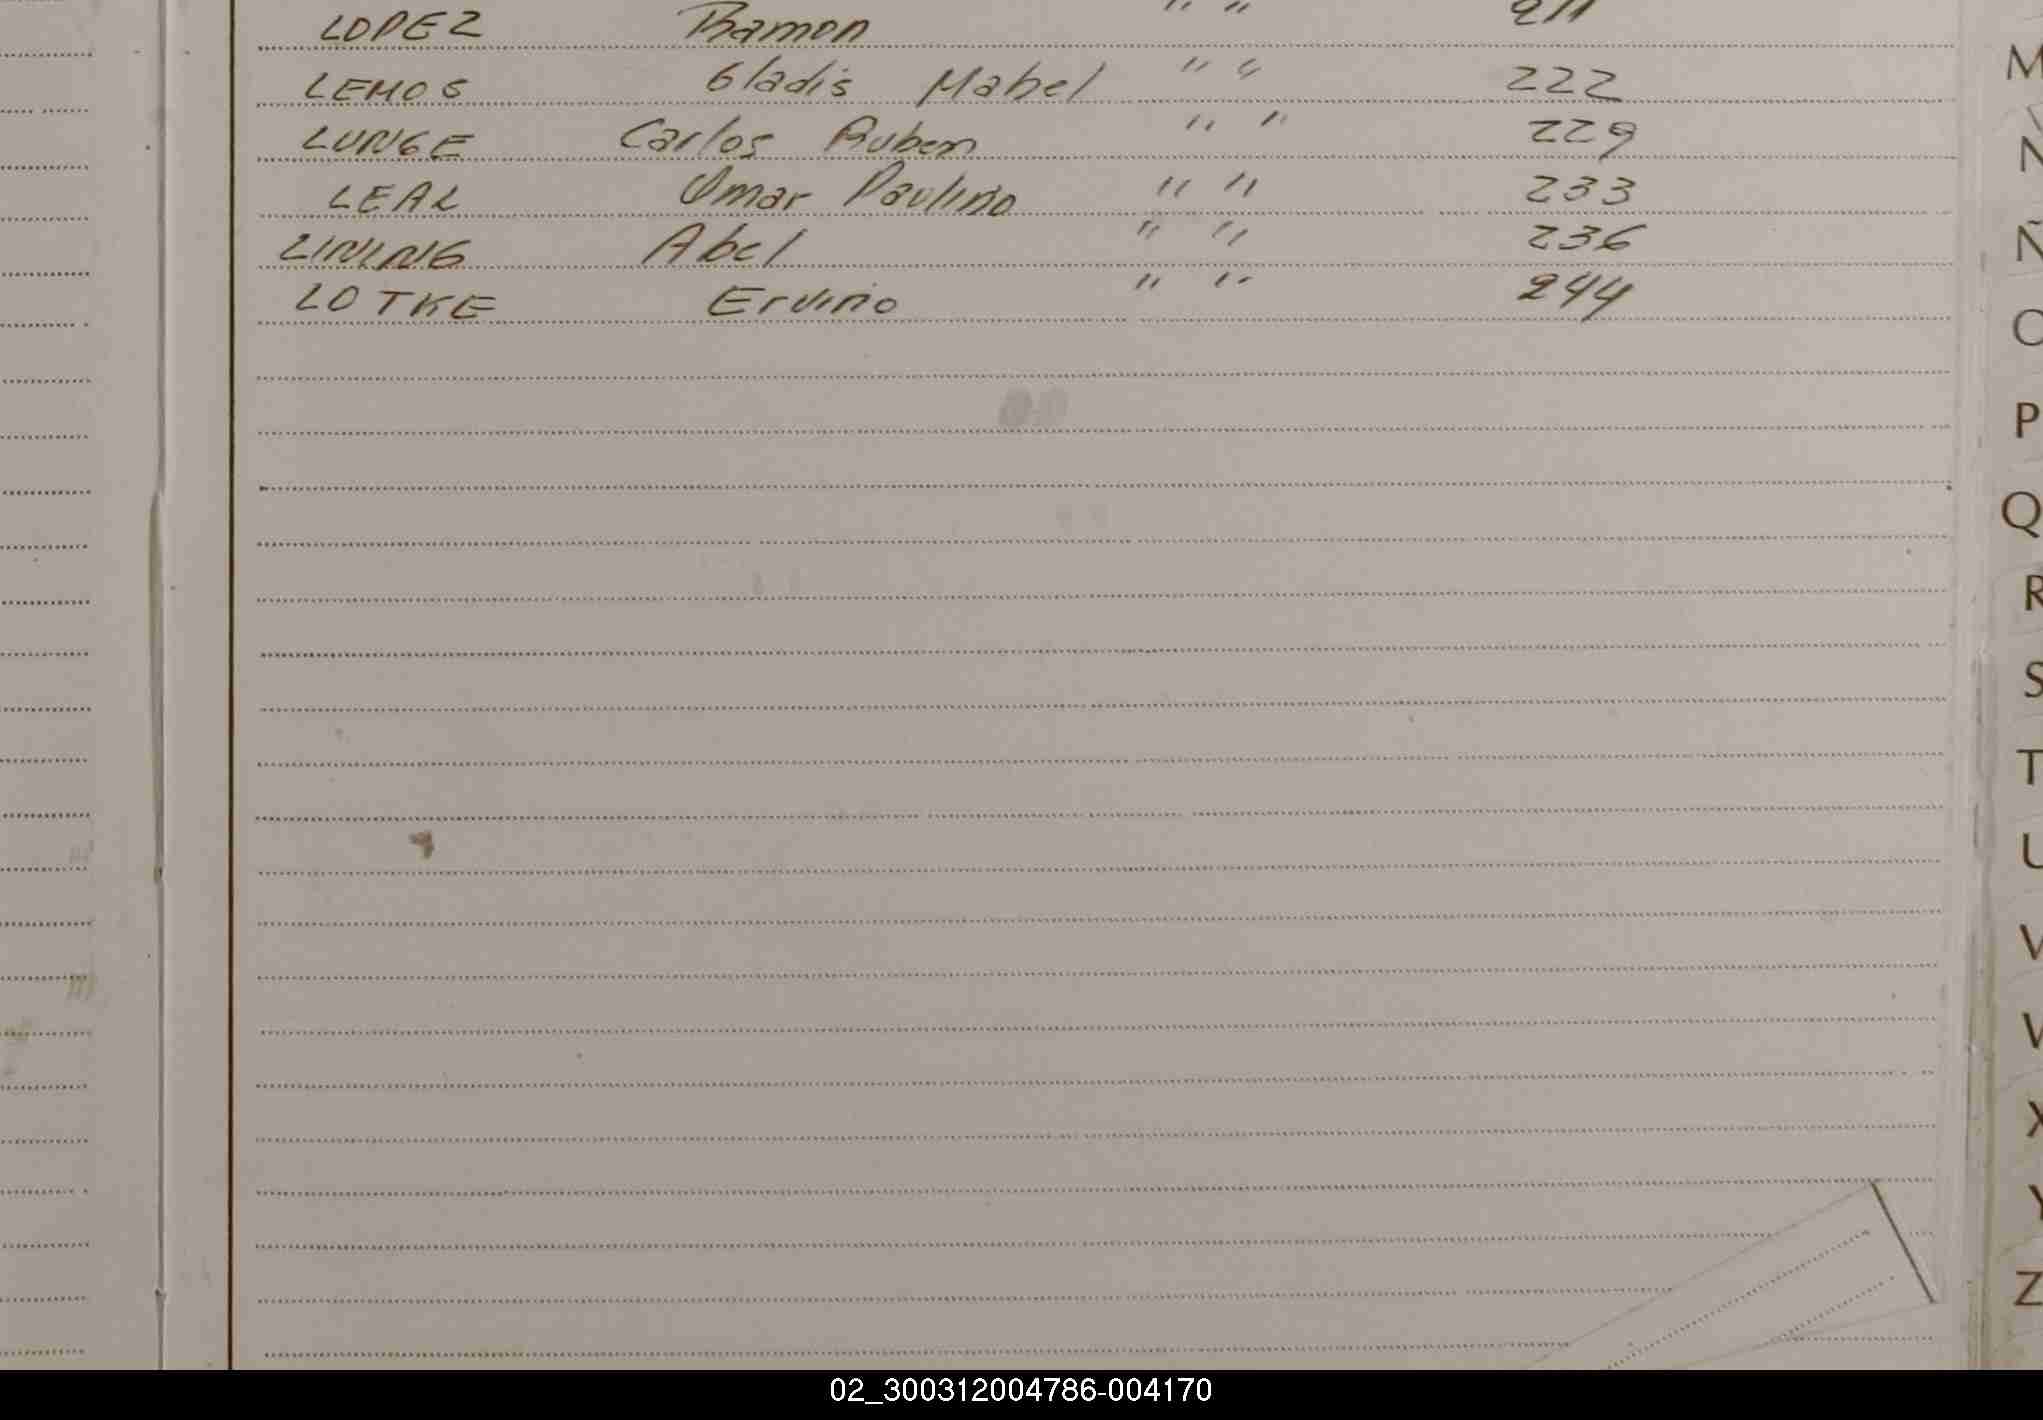 LOPEZ Ramon " " 211
LEMOS Gladis Mabel " " 222
LUNGE Carlos Ruben " " 229
LEAL Omar Paulino " " 233
LINING Abel " " 236
LOTKE Ervino " " 244
M
N
Ñ
O
P
Q
R
S
T
U
V
W
X
Y
Z
02_300312004786-004170